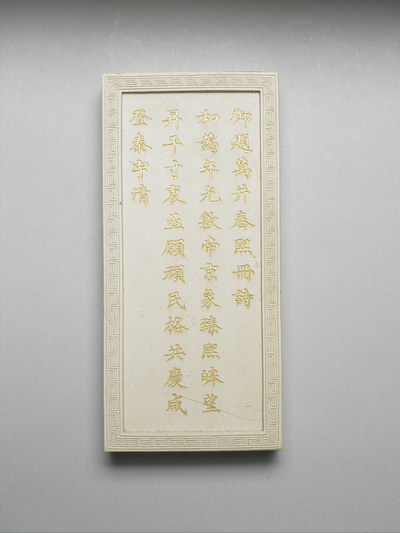 御題萬井春熙冊詩
和藹年光敷帝京家臻熙皞望
昇平寸衷亟願頑民格共慶咸
登泰宇清